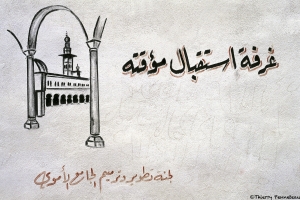 غرفة استقبال مؤقته
لجنة تطوير وترميم الجامع الأموي
©Thierry